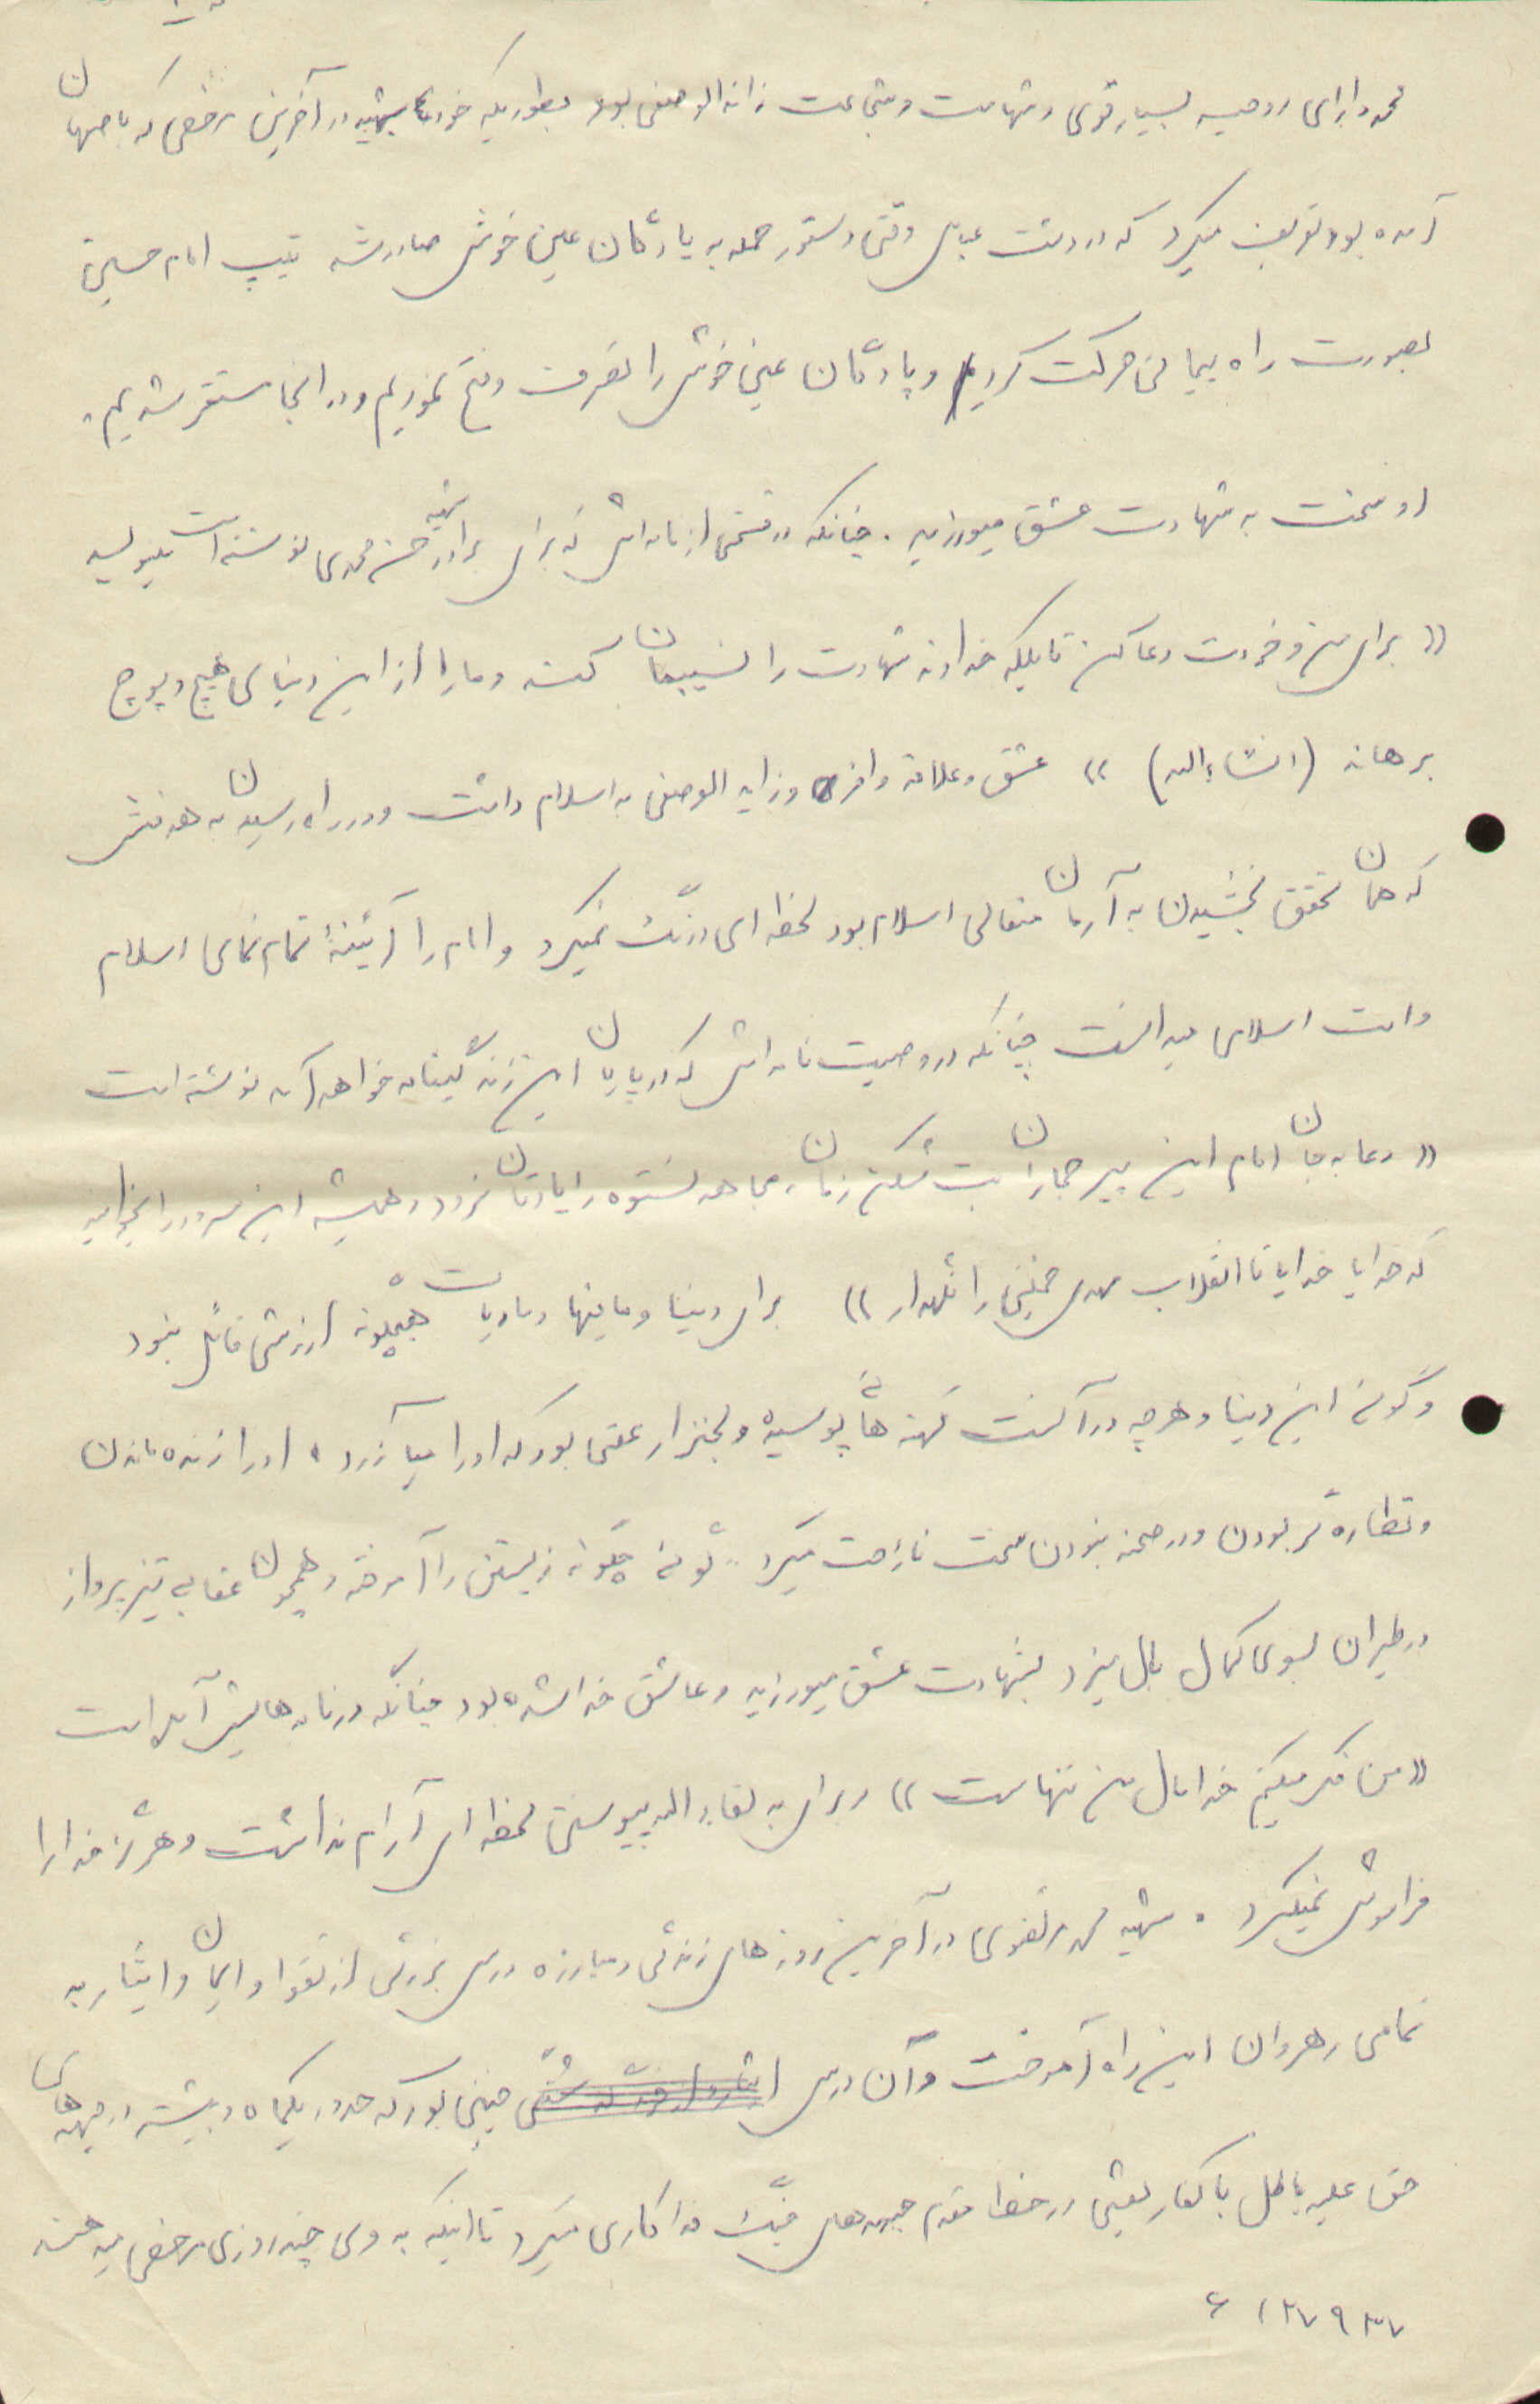 محمد دارای روحیه بسیار قوی و شهامت و شجاعت زائد الوصفی بود بطوریکه خود شهید در آخرین مرخصی که باصفهان
آمده بود تعریف میکرد که در دشت عباس وقتی دستور حمله به پادگان عین خوش صادر شد تیپ امام حسین
بصورت راه پیمائی حرکت کردیم و پادگان عین خوش را تصرف و فتح نمودیم و در آنجا مستقر شدیم.
او سخت به شهادت عشق میورزید. چنانکه در قسمتی از نامه اش که برای برادر شهید حسن محمدی نوشته است میگوید
«برای من و خودت دعا کن تا بلکه خداوند شهادت را نصیبمان کند و ما را از این دنیای هیچ و پوچ
برهاند (انشاءالله)» عشق و علاقه وافر و زاید الوصفی به اسلام داشت و در راه رسیدن به هدفش
که همان تحقق بخشیدن به آرمان متعالی اسلام بود لحظه ای درنگ نمیکرد و امام را آئینۀ تمام نمای اسلام
و امت اسلامی میدانست چنانکه در وصیت نامه اش که در پایان این زندگینامه خواهد آمد نوشته است
«دعا به جان امام این پیر جماران بت شکن زمان، مجاهد نستوه را یادتان نرود و همیشه این سرود را بخوانید
که خدایا خدایا تا انقلاب مهدی خمینی را نگهدار» برای دنیا و مافیها و مادیات هیچگونه ارزشی قائل نبود
و گوئی این دنیا و هرچه در آنست کهنه های پوسیده و لجنزار عفنی بود که او را میآزرد. او را زنده ماندن
و نظاره گر بودن و در صحنه نبودن سخت ناراحت میکرد. گوئی چگونه زیستن را آموخته و همچون عقابی تیز پرواز
در طیران بسوی کمال بال میزد بشهادت عشق میورزید و عاشق خدا شده بود چنانکه در نامه هایش آمده است
«من فکر میکنم خدا مال من تنهاست» و برای به لقاء الله پیوستن لحظه ای آرام نداشت و هرگز خدا را
فراموش نمیکرد. شهید محمد تقوی در آخرین روزهای زندگی و مبارزه درس بزرگی از تقوا و ایمان و ایثار به
تمامی رهروان این راه آموخت و آن درس چنین بود که حدود یکماه و بیشتر در جبهه های
حق علیه باطل با کفار بعثی در خط مقدم جبهه های جنگ فداکاری میکرد تا اینکه به وی چند روزی مرخصی میدهند
۶۱۳۷۹۳۷